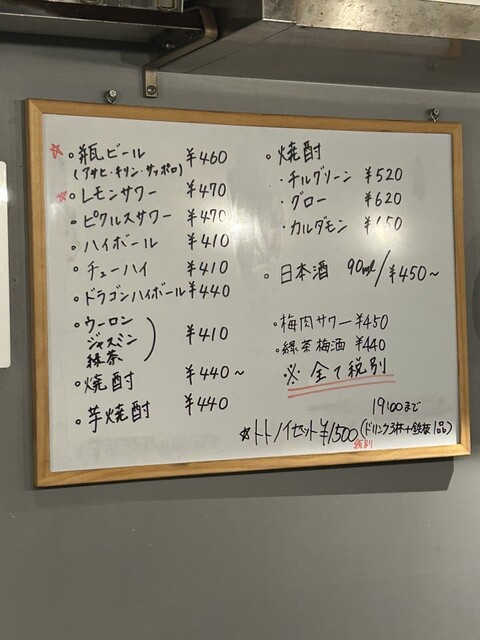 ☆ ○ 瓶ビール ¥460
(アサヒ・キリン・サッポロ)
☆ ○ レモンサワー ¥470
○ ピクルスサワー ¥470
○ ハイボール ¥410
○ チューハイ ¥410
○ ドラゴンハイボール ¥440
○ ウーロン
ジャスミン
緑茶
) ¥410
○ 焼酎 ¥440~
○ 芋焼酎 ¥440
○ 焼酎
・チルグリーン ¥520
・グロー ¥620
・カルダモン
○ 日本酒 90ml/¥450~
・梅肉サワー ¥450
○ 緑茶梅酒 ¥440
※ 全て税別
19:00まで
☆トトノイセット¥1500(ドリンク3杯+鉄板1品)
税別